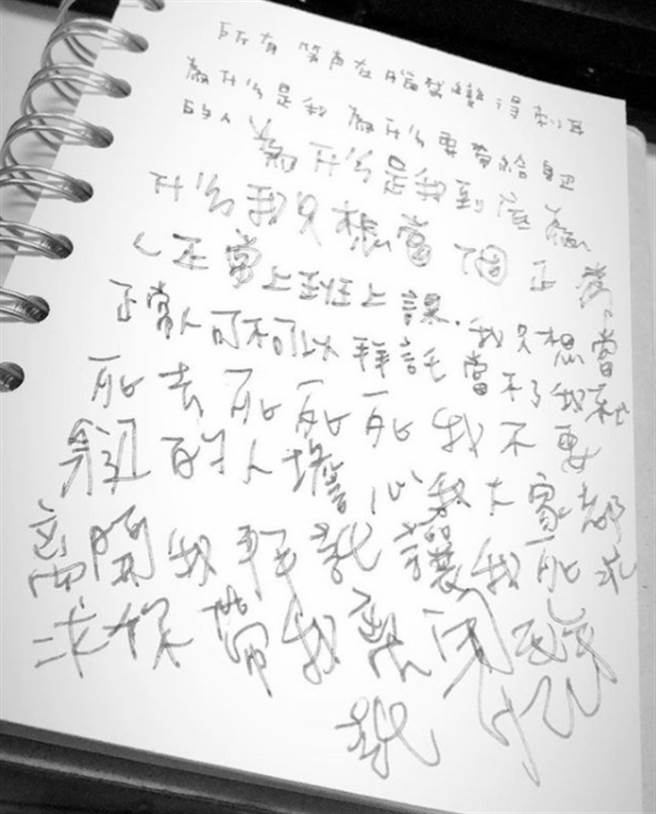 所有 笑声在腦袋變得刺耳
為什么是我 為什么要帶給身边
的人 為什么是我到底為
什么我只想當個正常
人正常上班上課.我只想當
正常人可不可以拜託當不了我就
死去死死死我不要
身边的人擔心我大家都
離開我拜託讓我死求
求你帶我離開